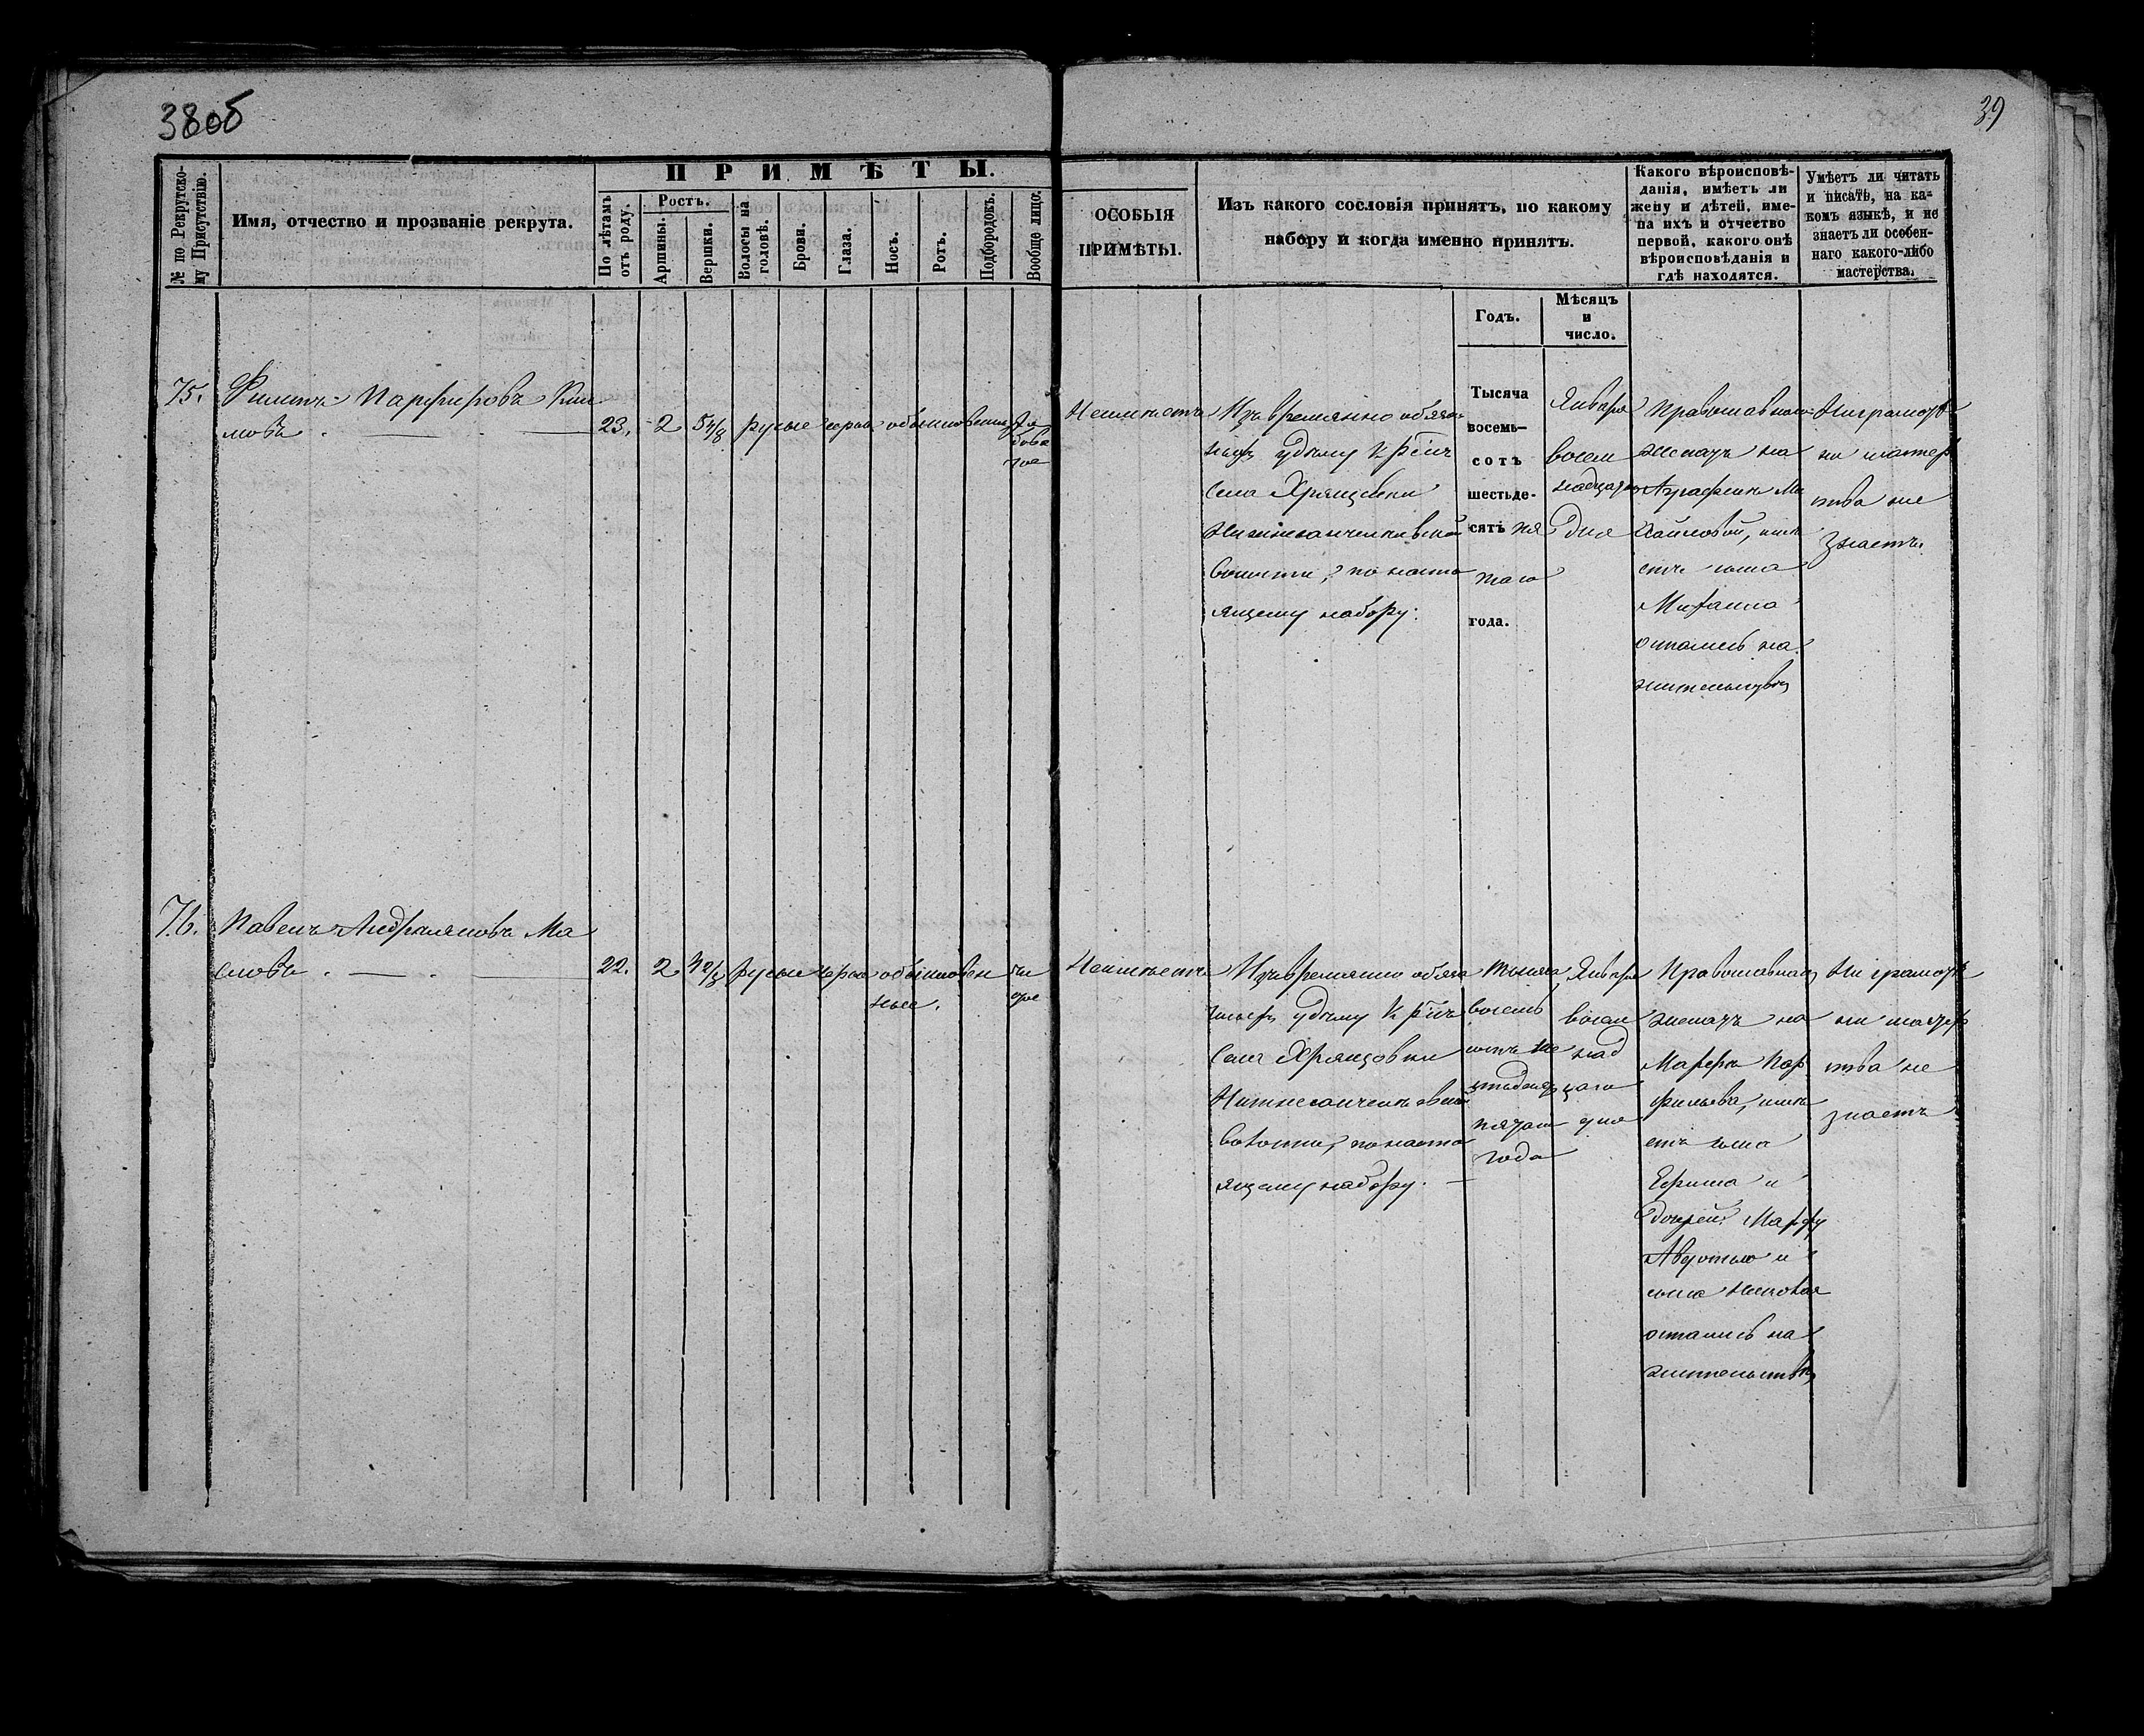 38об
39
№ по Рекрутско-
му Присутствію.
Имя, отчество и прозваніе рекрута.
ПРИМѢТЫ.
По лѣтамъ
отъ роду.
Ростъ.
Аршины.
Вершки.
Волосы на
головѣ.
Брови.
Глаза.
Носъ.
Ротъ.
Подбородокъ.
Вообще лицо.
ОСОБЫЯ
ПРИМѢТЫ.
Изъ какого сословія принятъ, по какому
набору и когда именно принятъ.
Годъ.
Мѣсяцъ
и
число.
Какого вѣроисповѣ-
данія, имѣетъ ли
жену и дѣтей, име-
на ихъ и отчество
первой, какого онѣ
вѣроисповѣданія и
гдѣ находятся.
Умѣетъ ли читать
и писать, на ка-
комъ языкѣ, и не
знаетъ ли особен-
наго какого-либо
мастерства.
75.
Филипъ Парфировъ Кли
мовъ
23.
2
5 4/8
русые
серые
обыкновенные
ря
бова
тое
Неимѣетъ
Изъ временно обязан
ныхъ
села Хрящевки
волости, по насто
ящему набору.
Тысяча
восемь-
сотъ
шестьде-
сятъ пя
таго
года.
Января
восем
надцаго
дня
Православнаго
женатъ на
Аграфенѣ Ми
хайловой, имѣ
етъ сына
Михаила
остались на
жительствѣ
Неграмотѣ
ни мастер
ства не
знаетъ
76.
Павелъ Андреяновъ Ма
словъ
22.
2
русые
серые
обыкновен
ные.
чи
стое
Неимѣетъ
Изъ временно обяза
села Хрящовки
волости, по насто
ящему набору.
тысяча
восемь
сотъ ше
стьдесятъ
пятаго
года
Января
восем
над
цаго
дня
Православнаго
женатъ на
Марфѣ Пор
фильева, имѣ
етъ сына
Ефима и
дочерей Марфу
Авдотью и
остались на
жительствѣ
Ни грамотѣ
ни мастер
ства не
знаетъ